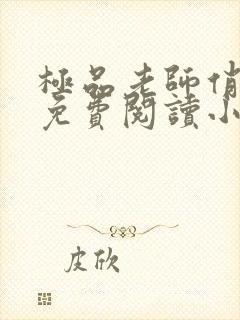 極品老師俏
免費閱讀小
皮欣